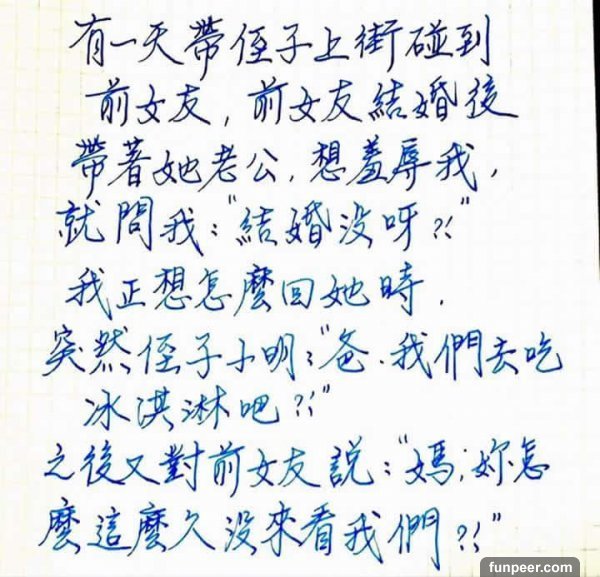 有一天帶侄子上街碰到
前女友，前女友結婚後
帶著她老公，想羞辱我，
就問我："結婚没呀?!"
我正想怎麼回她時，
突然侄子小明："爸、我們去吃
冰淇淋吧?!"
之後又對前女友說："媽，妳怎
麼這麼久没來看我們?!"
funpeer.com